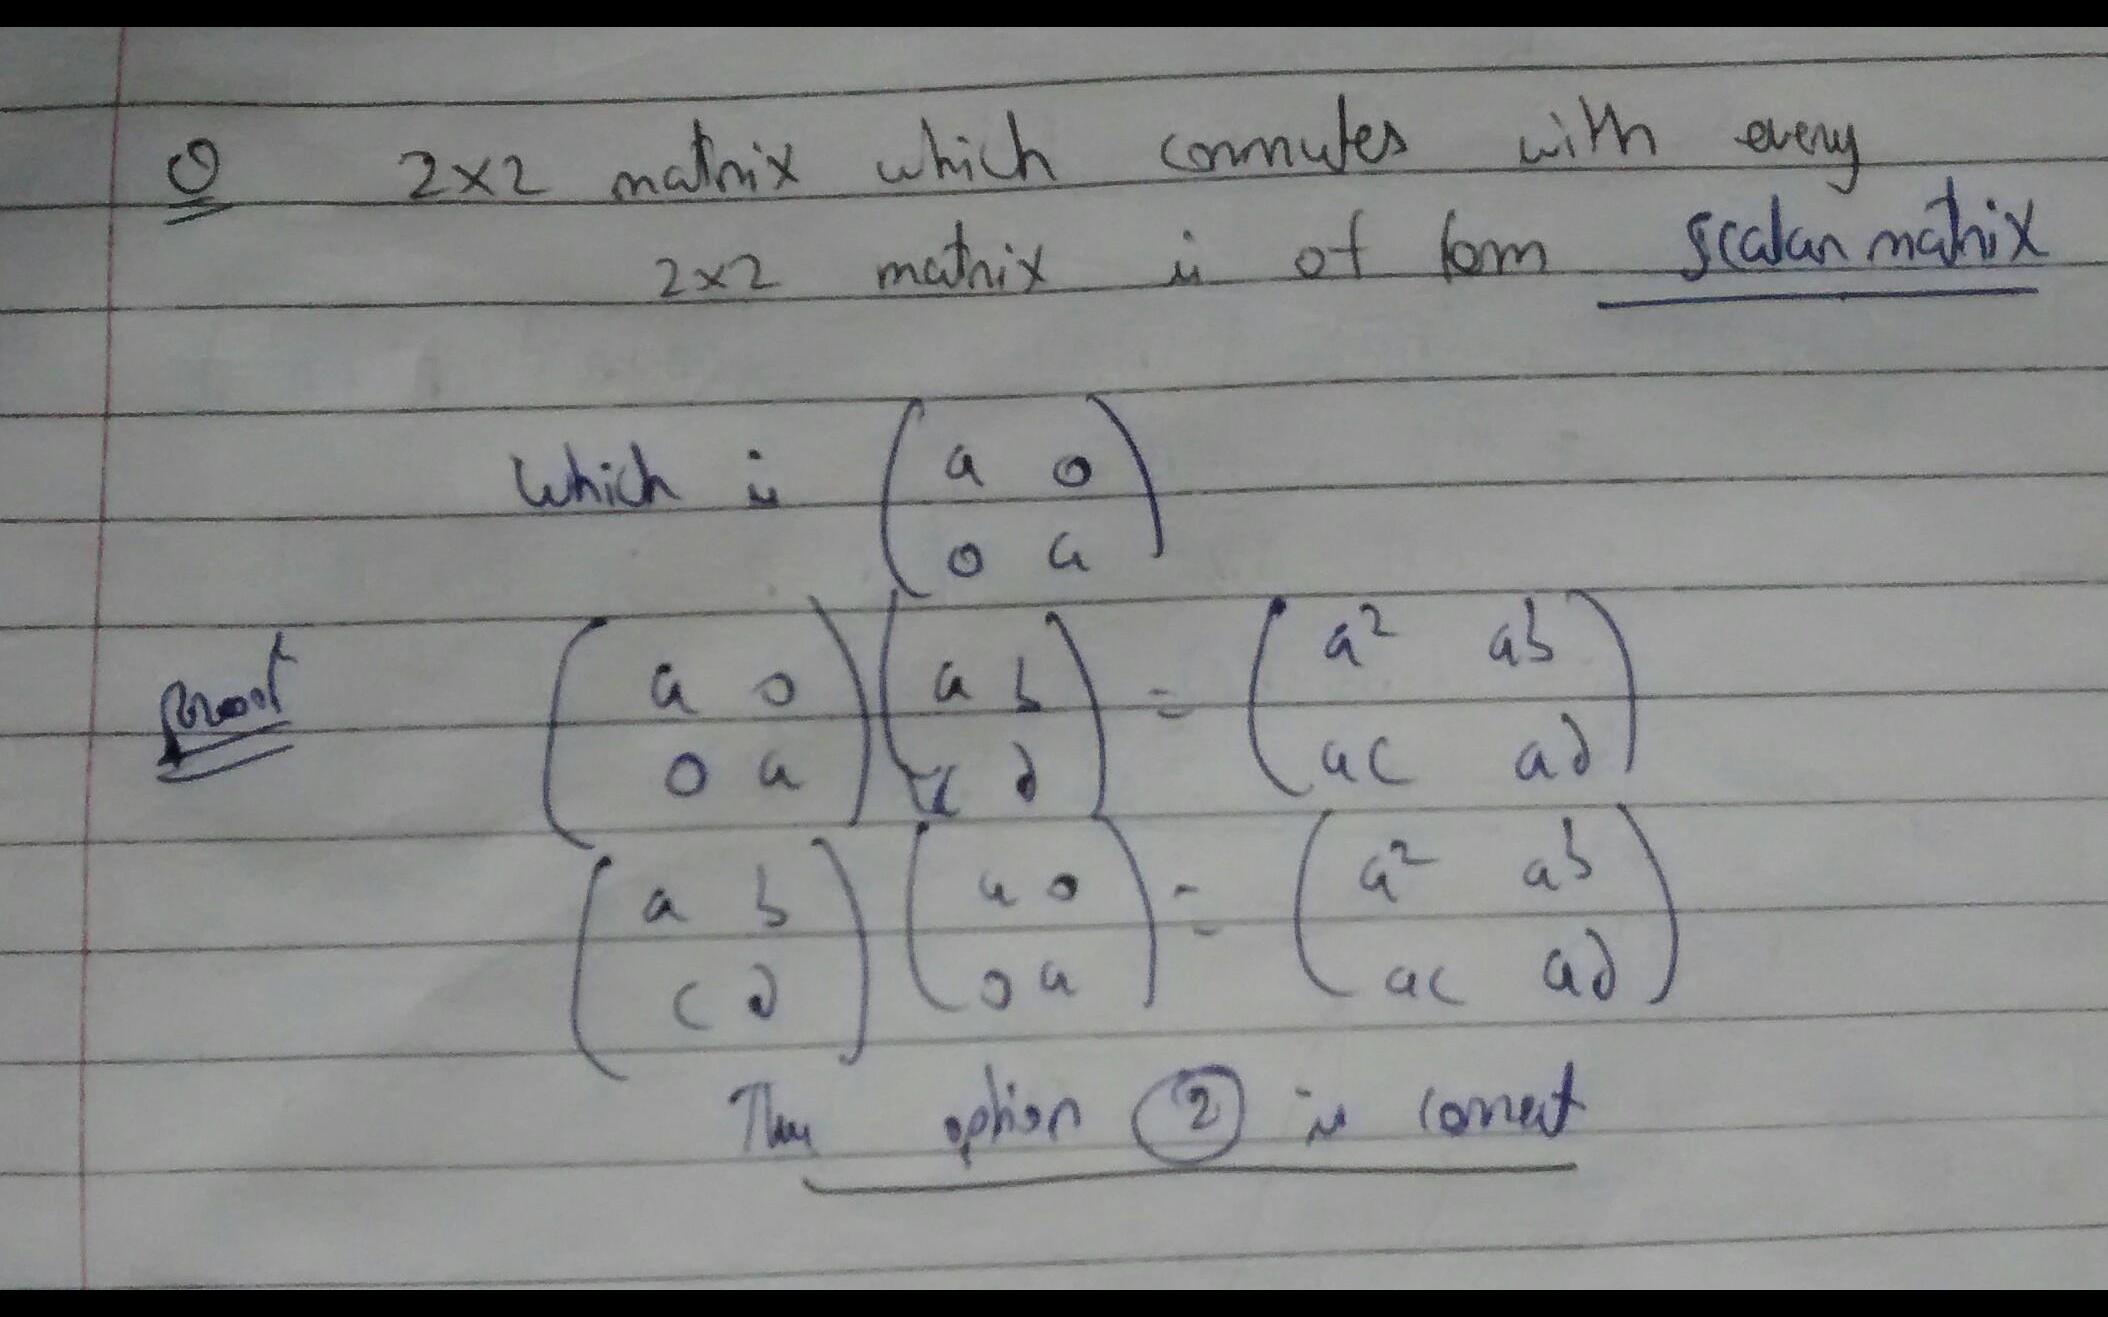 Q 2x2 matrix which commutes with every
2x2 matrix is of form scalar matrix
Which is (a 0
0 a)
Proof (a 0 (a b = (a² ab
0 a) c d) ac ad)
(a b (a 0 = (a² ab
c d) 0 a) ac ad)
Thus option ② is correct